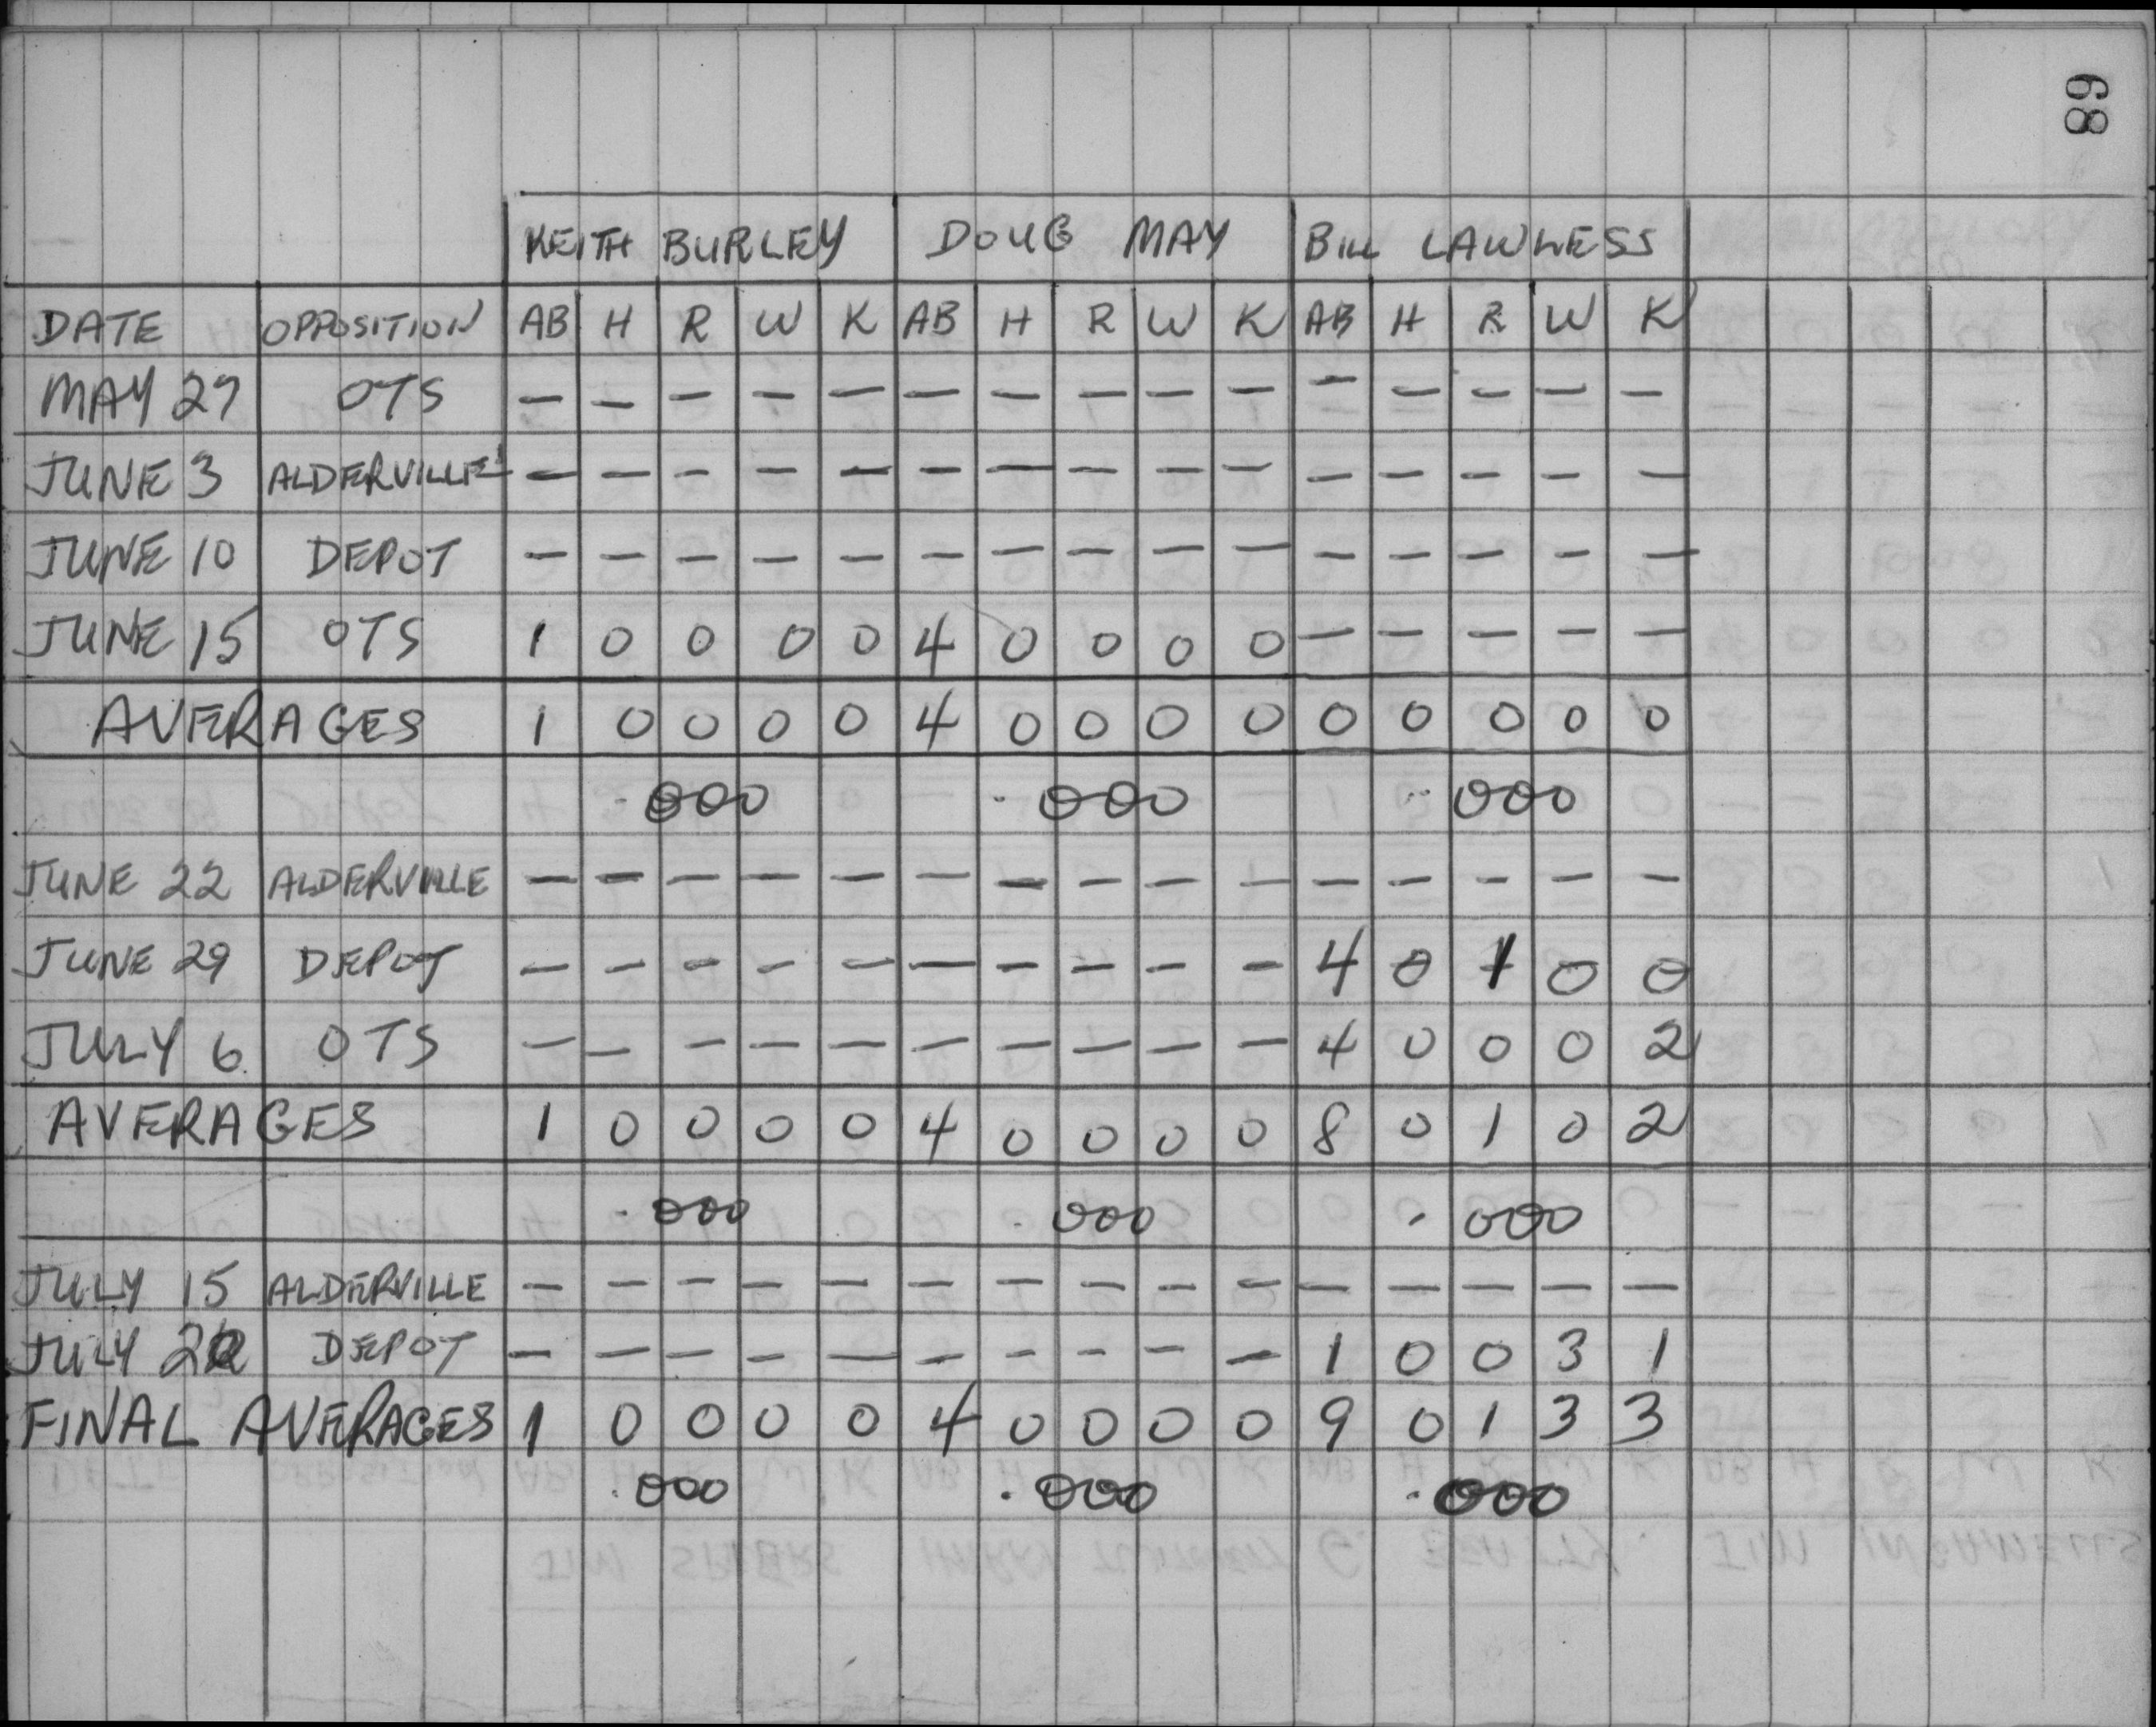 89
KEITH BURLEY DOUG MAY BILL LAWLESS
DATE OPPOSITION AB H R W K AB H R W K AB H R W K
MAY 27 OTS — — — — — — — — — — — — — — —
JUNE 3 ALDERVILLE — — — — — — — — — — — — — — —
JUNE 10 DEPOT — — — — — — — — — — — — — — —
JUNE 15 OTS 1 0 0 0 0 4 0 0 0 0 — — — — —
AVERAGES 1 0 0 0 0 4 0 0 0 0 0 0 0 0 0
.000 .000 .000
JUNE 22 ALDERVILLE — — — — — — — — — — — — — — —
JUNE 29 DEPOT — — — — — — — — — — 4 0 1 0 0
JULY 6 OTS — — — — — — — — — — 4 0 0 0 2
AVERAGES 1 0 0 0 0 4 0 0 0 0 8 0 1 0 2
.000 .000 .000
JULY 15 ALDERVILLE — — — — — — — — — — — — — — —
JULY 22 DEPOT — — — — — — — — — — 1 0 0 3 1
FINAL AVERAGES 1 0 0 0 0 4 0 0 0 0 9 0 1 3 3
.000 .000 .000